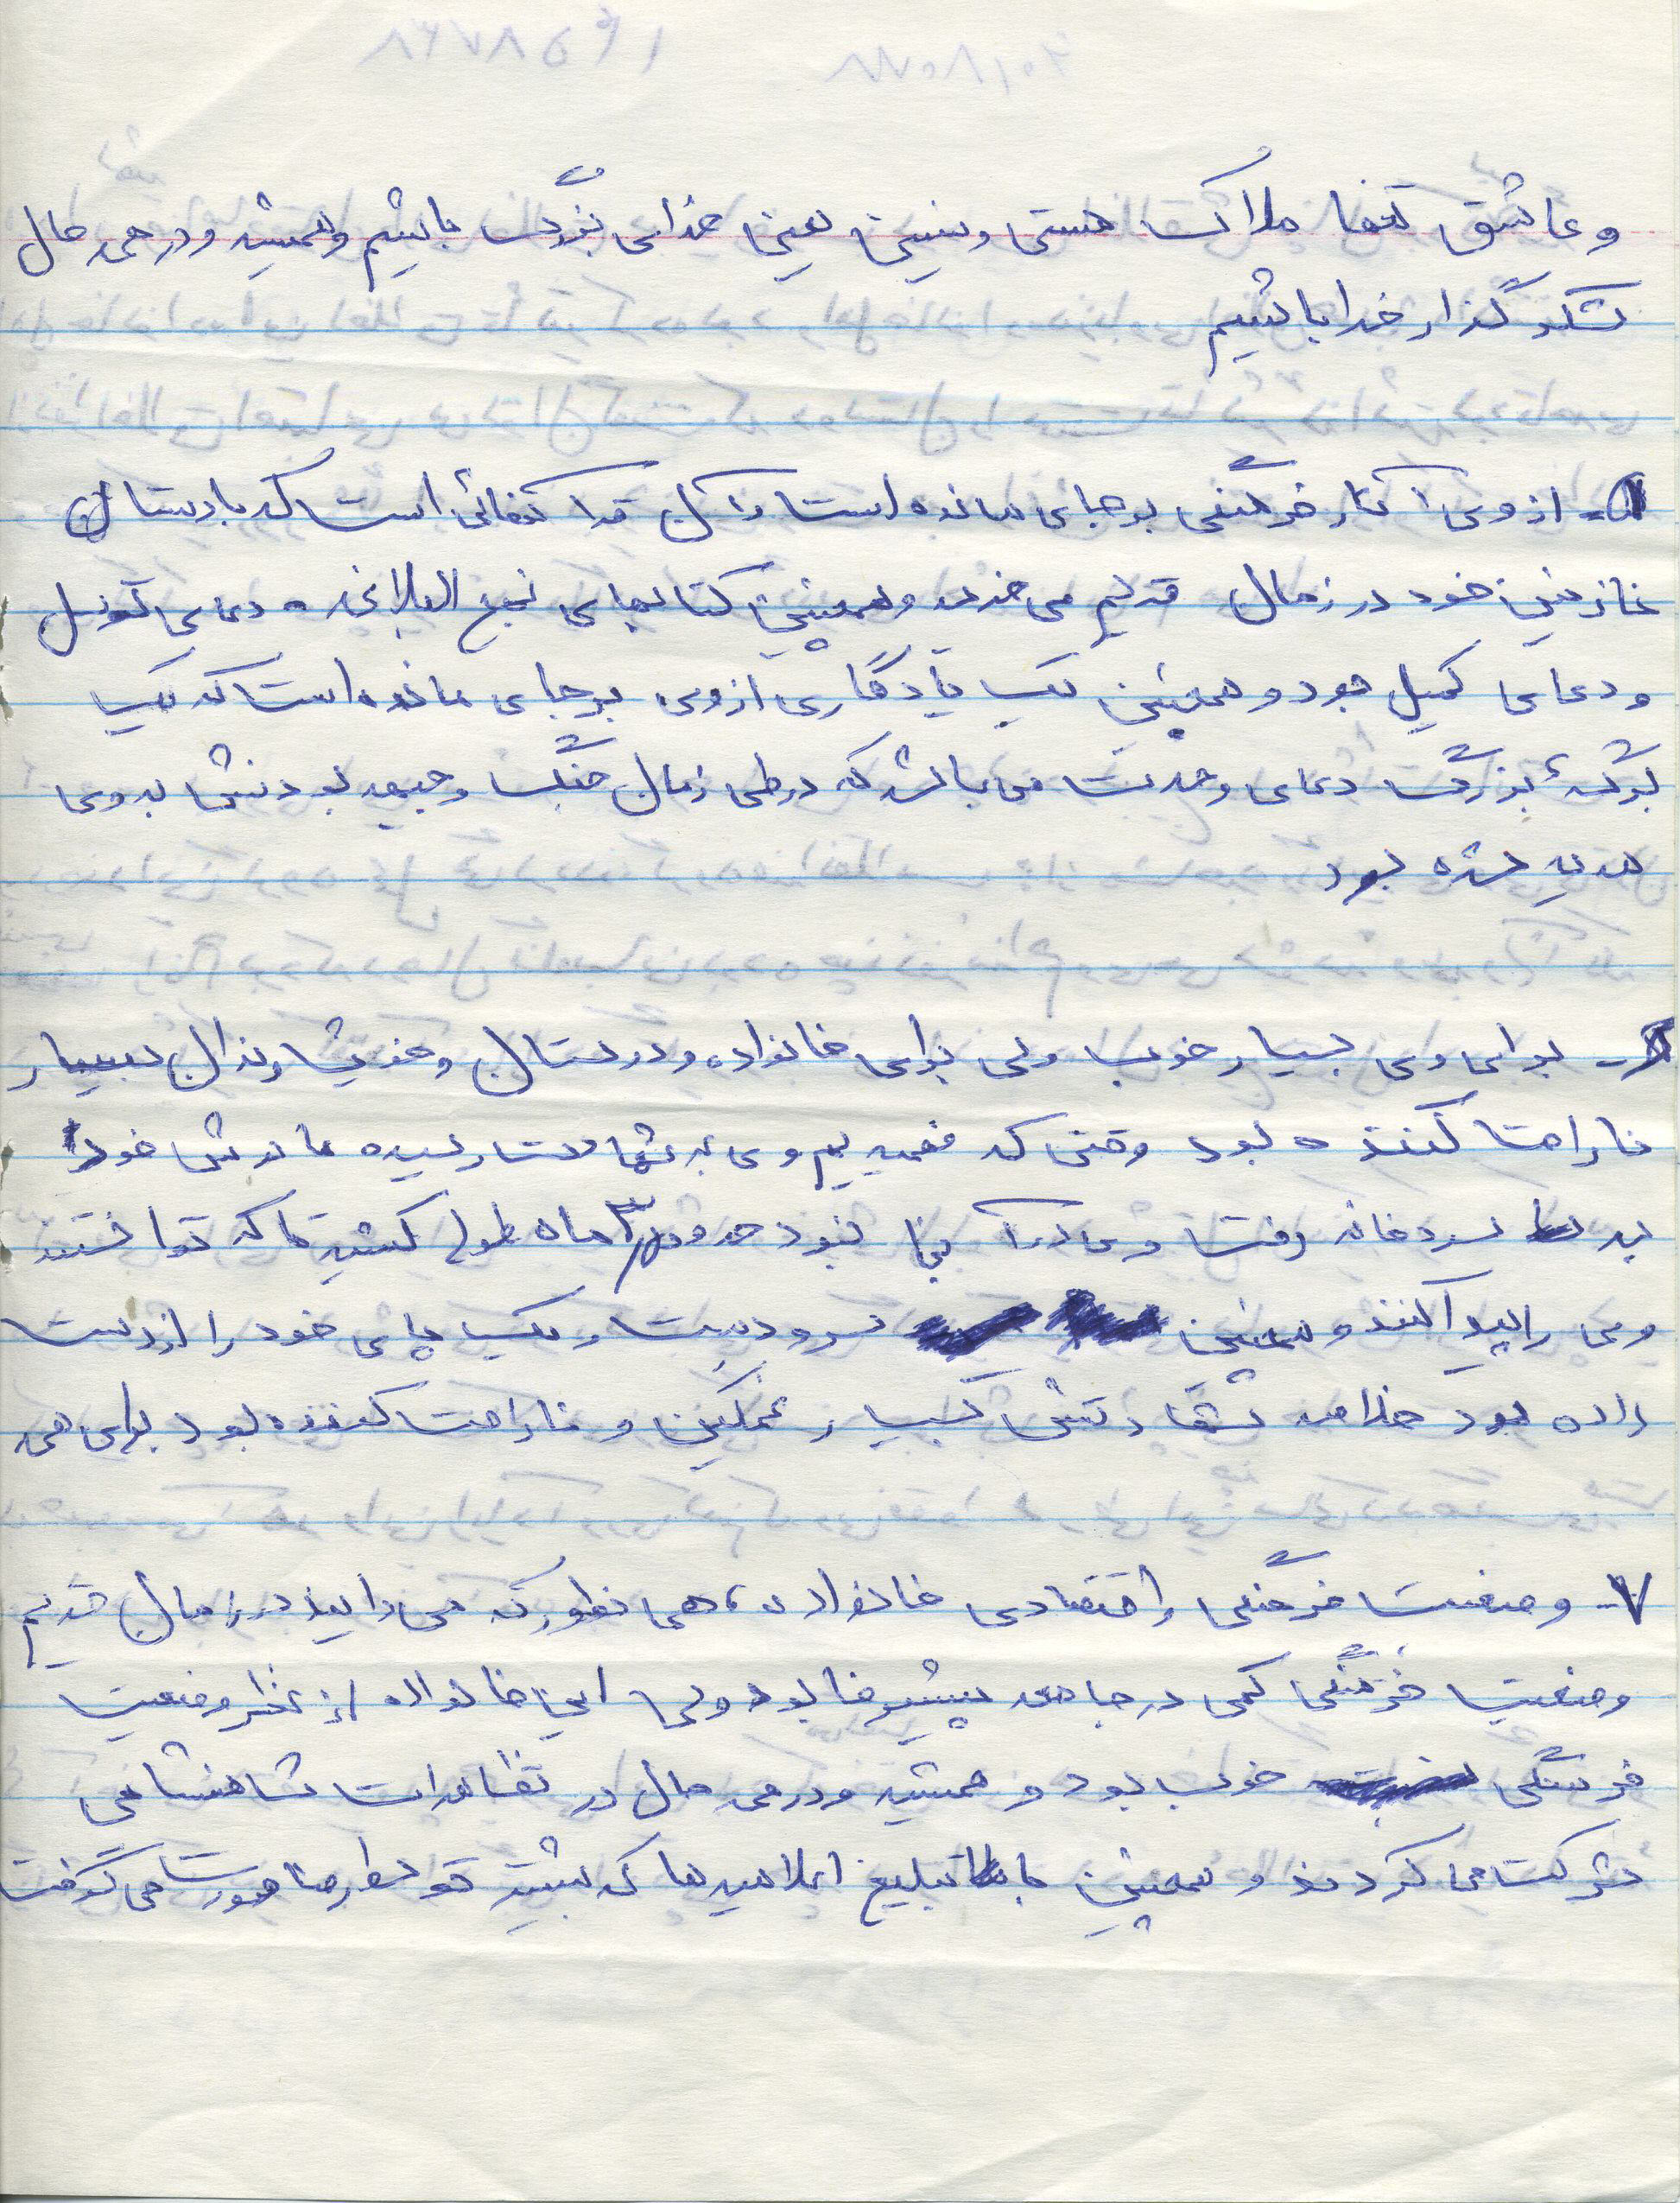 و عاشق تنها ملاک هستی و نیستی یعنی خدای بزرگ باشیم و همیشه و در همه حال
شکر گذار خدا باشیم
۵- از وی آثار فرهنگی بر جای مانده است و آن قرآنهائی است که با دستان
نازنین خود در زمان قدیم می خرید و همچنین کتابهای نهج البلاغه ، دعای توسل
و دعای کمیل بود و همچنین یک یادگاری از وی بر جای مانده است که یک
برگهٔ بزرگ دعای وحدت می باشد که در طی زمان جنگ و جبهه بودنش به وی
هدیه شده بود
- برای وی بسیار خوب ولی برای خانواده و دوستان و خویشاوندان بسیار
ناراحت کننده بود وقتی که فهمیدیم وی به شهادت رسیده مادرش خود
به سردخانه رفت و وی در آنجا نبود حدود ۳ ماه طول کشید تا که توانستند
وی را پیدا کنند و همچنین سر و دست و یک پای خود را از دست
داده بود خلاصه شهادتش بسیار غمگین و ناراحت کننده بود برای همه
۷- وضعیت فرهنگی و اقتصادی خانواده ، همانطور که می دانید در زمان قدیم
وضعیت فرهنگی کمی در جامعه پیشرفتا بود ولی این خانواده از نظر وضعیت
فرهنگی خوب بود و همیشه و در همه حال در تظاهرات شاهنشاهی
شرکت می کردند و همچنین با تبلیغ اعلامیه ها که بیشتر توسط رضا صورت می گرفت